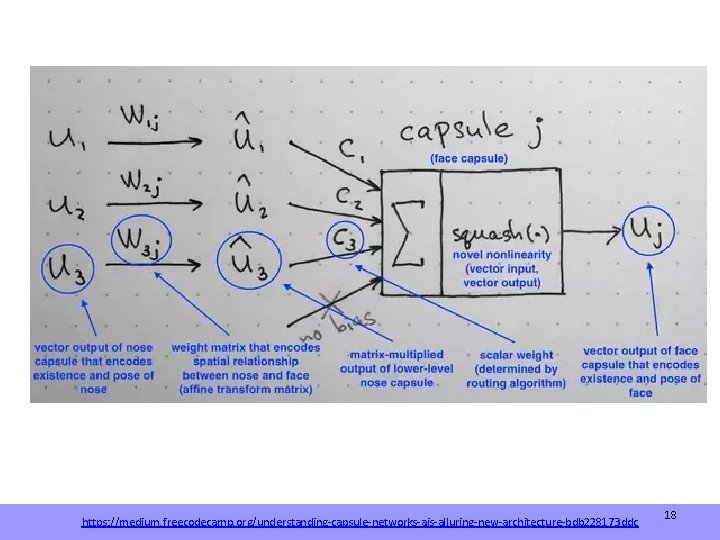 W1j
u1
û1
c1
capsule j
(face capsule)
W2j
u2
û2
c2
W3j
u3
û3
c3
Σ
squash(·)
novel nonlinearity
(vector input,
vector output)
uj
no bias
vector output of nose
capsule that encodes
existence and pose of
nose
weight matrix that encodes
spatial relationship
between nose and face
(affine transform matrix)
matrix-multiplied
output of lower-level
nose capsule
scalar weight
(determined by
routing algorithm)
vector output of face
capsule that encodes
existence and pose of
face
https://medium.freecodecamp.org/understanding-capsule-networks-ais-alluring-new-architecture-bdb228173ddc
18